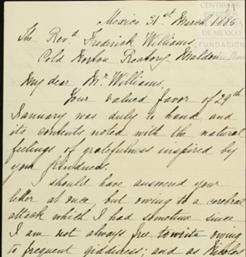 Mexico 31st March 1886.
The Revd. Fredrick Williams,
Cold Norton Rectory, Maldon
My dear Mr. Williams,
Your valued favor of 29th
January was duly to hand and
its contents noted with the natural
feelings of gratefulness inspired by
your kindness.
I should have answered your
letter at once, but owing to a cerebral
attack which I had sometime since
I am not always free to write owing
to frequent giddiness; and as
DE MEXICO
FUNDACIÓN